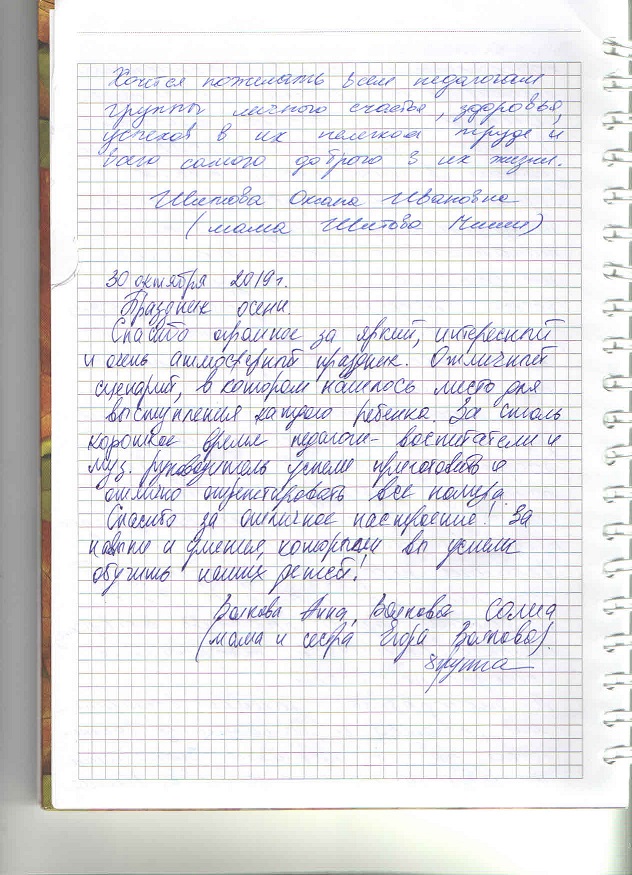 Хочется пожелать всем педагогам
группы личного счастья, здоровья,
успехов в их нелегком труде и
всего самого доброго в их жизни.
Шитова Оксана Ивановна
(мама Шитова Миши)
30 октября 2019г.
Праздник осени.
Спасибо огромное за яркий, интересный
и очень атмосферный праздник. Отличный
сценарий, в котором нашлось место для
выступления каждого ребенка. За столь
короткое время педагоги - воспитатели и
муз. руководитель успели приготовить и
отлично отрепетировать все номера.
Спасибо за отличное настроение! За
навыки и умения, которым вы успели
обучить наших детей!
Волкова Анна, Волкова
(мама и сестра Егора Волкова).
группа